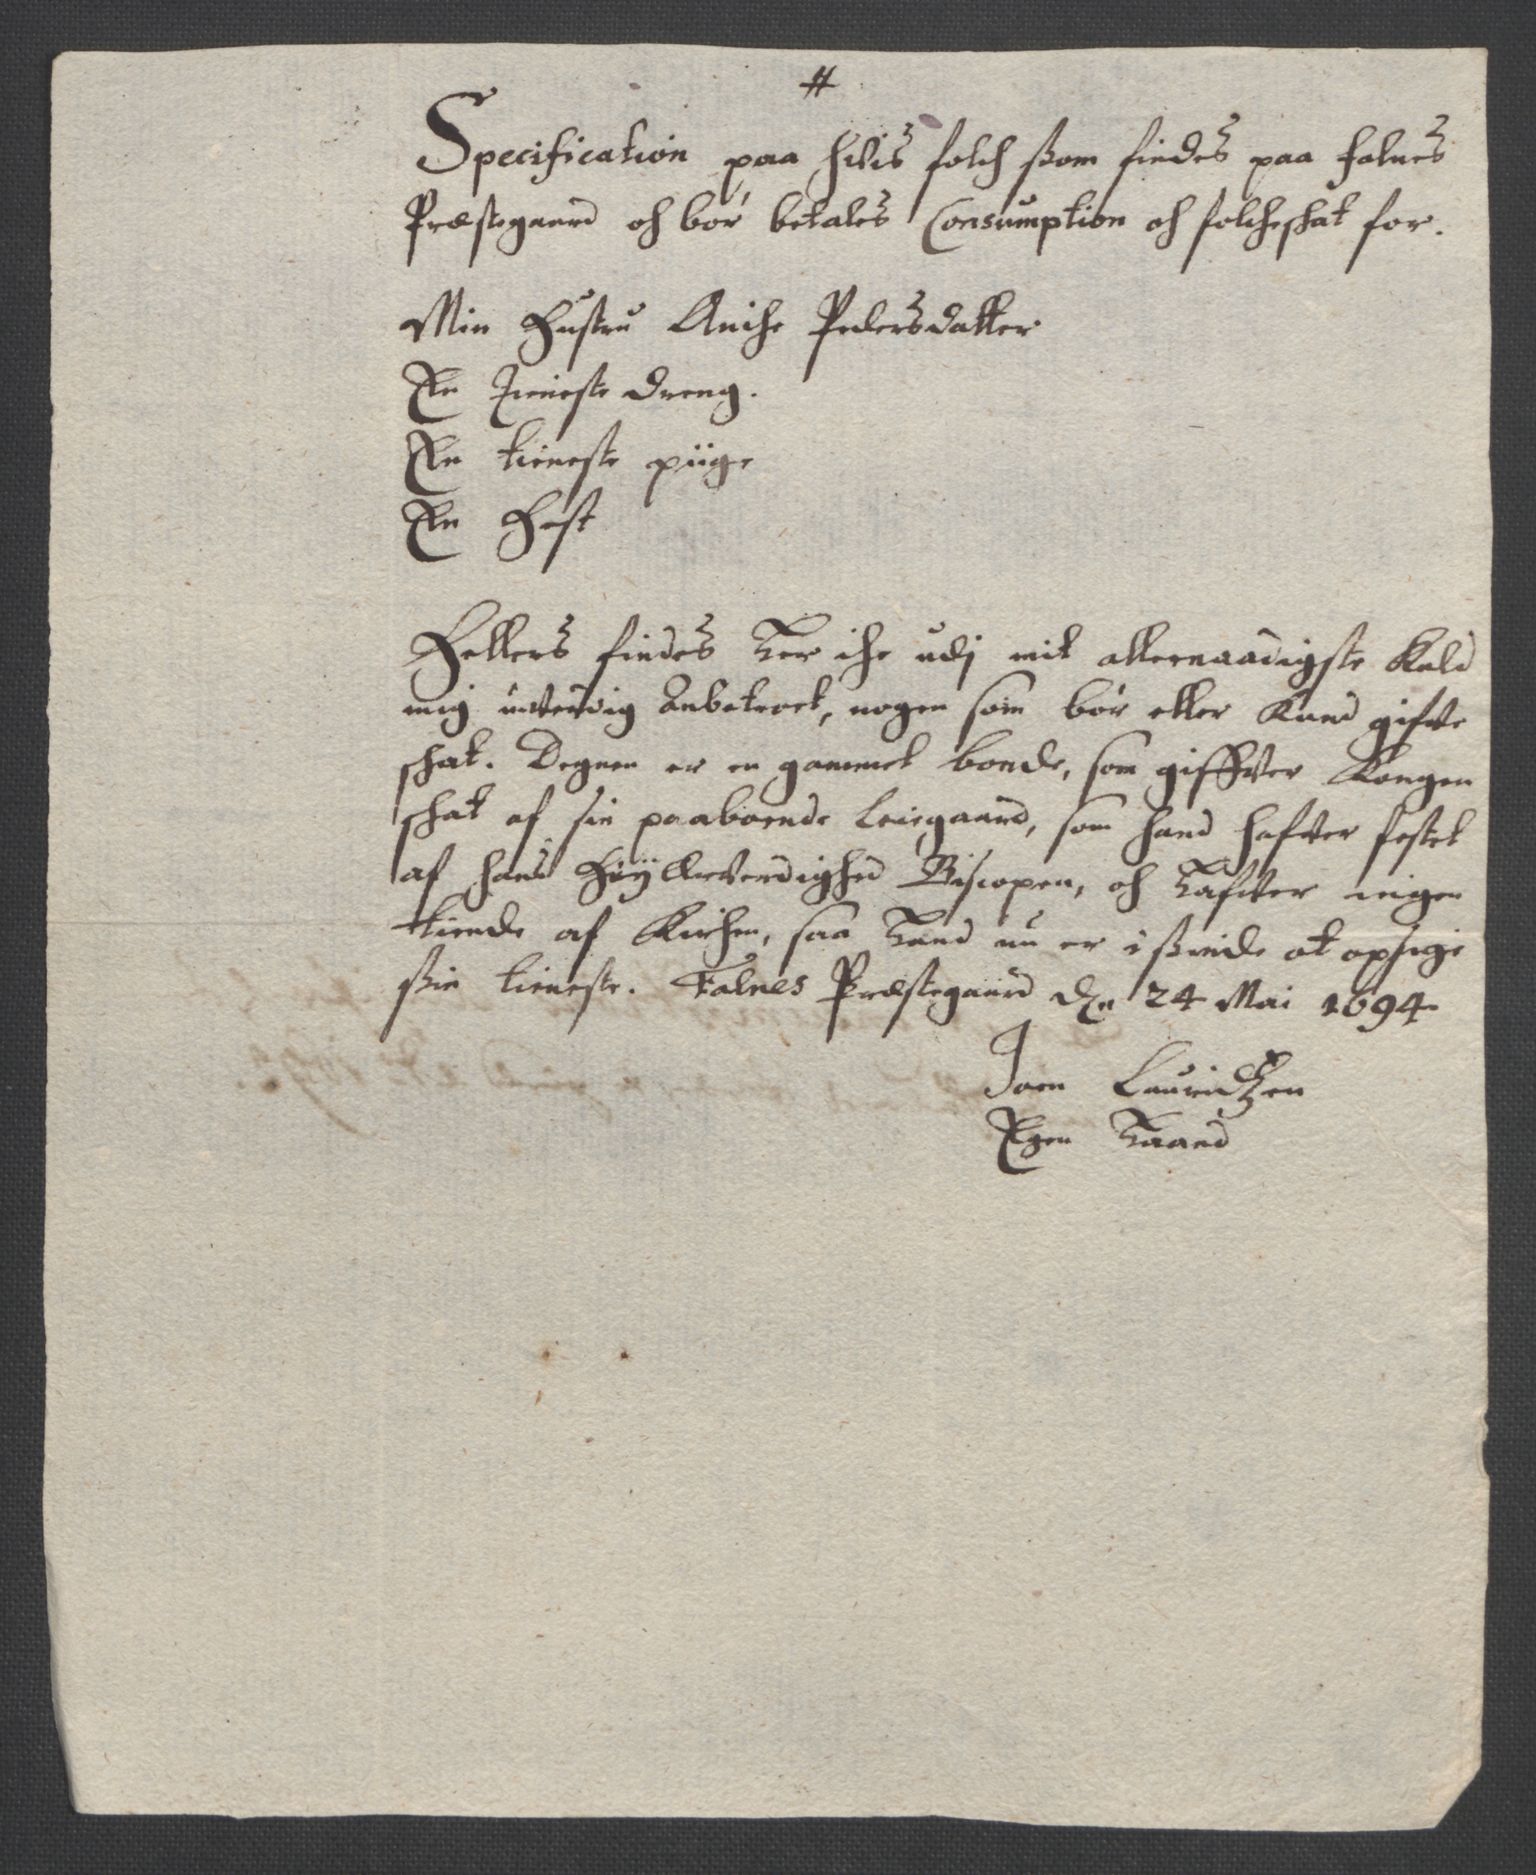 #
Specification paa hvis folch ßom findes paa Falnes
Præstegaard och bør betales Consumption och folcheschat for.
Min Hustru Aniche Pedersdatter
En Tieneste dreng.
En tieneste piige
En Hest
Hellers findes her iche udj mit allernaadigste Kald
mig underdig Anbetroet, nogen som bør eller Kand gifve
schat. Degnen er en gammel bonde, som giffver Kongen
schat af sin paaboende Leiegaard, som hand hafver festet
af hans Høyærverdighed Biscopen, och hafver ingen
tiende af Kirchen, saa hand nu er i ßinde at opsige
ßin tieneste. Falnes Præstegaard den 24 Mai 1694
Joen Lauridtzen
Egen Haand